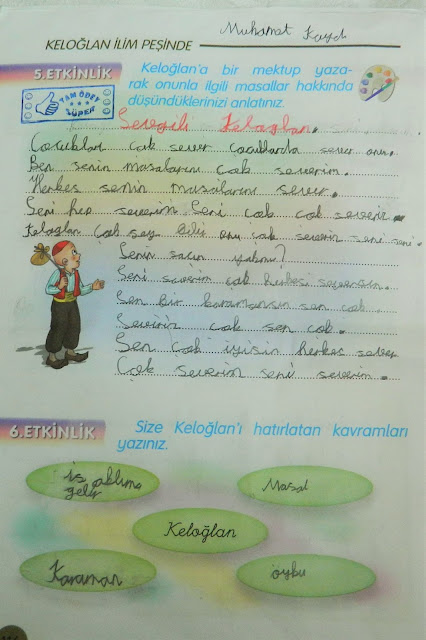 Muhamet Kaydı
KELOĞLAN İLİM PEŞİNDE
5.ETKİNLİK
Keloğlan'a bir mektup yaza-
rak onunla ilgili masallar hakkında
düşündüklerinizi anlatınız.
TAM ÖDEV
SÜPER
Sevgili Kelaglan.
Çocukları cok sever çocuklarda sever onu.
Ben senin masalarını çok severim.
Herkes senin masalarını sever.
Seni hep severim Seni çok çok severim.
Kelaglan çok şey bilir onu çok severim seni seni.
Senin saçın yokmu?
Seni severim çok herkesi seversin.
Sen bir karamansın sen çok
Severim çok sen çok.
Sen çok iyisin herkes sever
Çok severim seni severim.
6.ETKİNLİK
Size Keloğlan'ı hatırlatan kavramları
yazınız.
aklıma
gelir
Masal
Keloğlan
Karaman
öykü